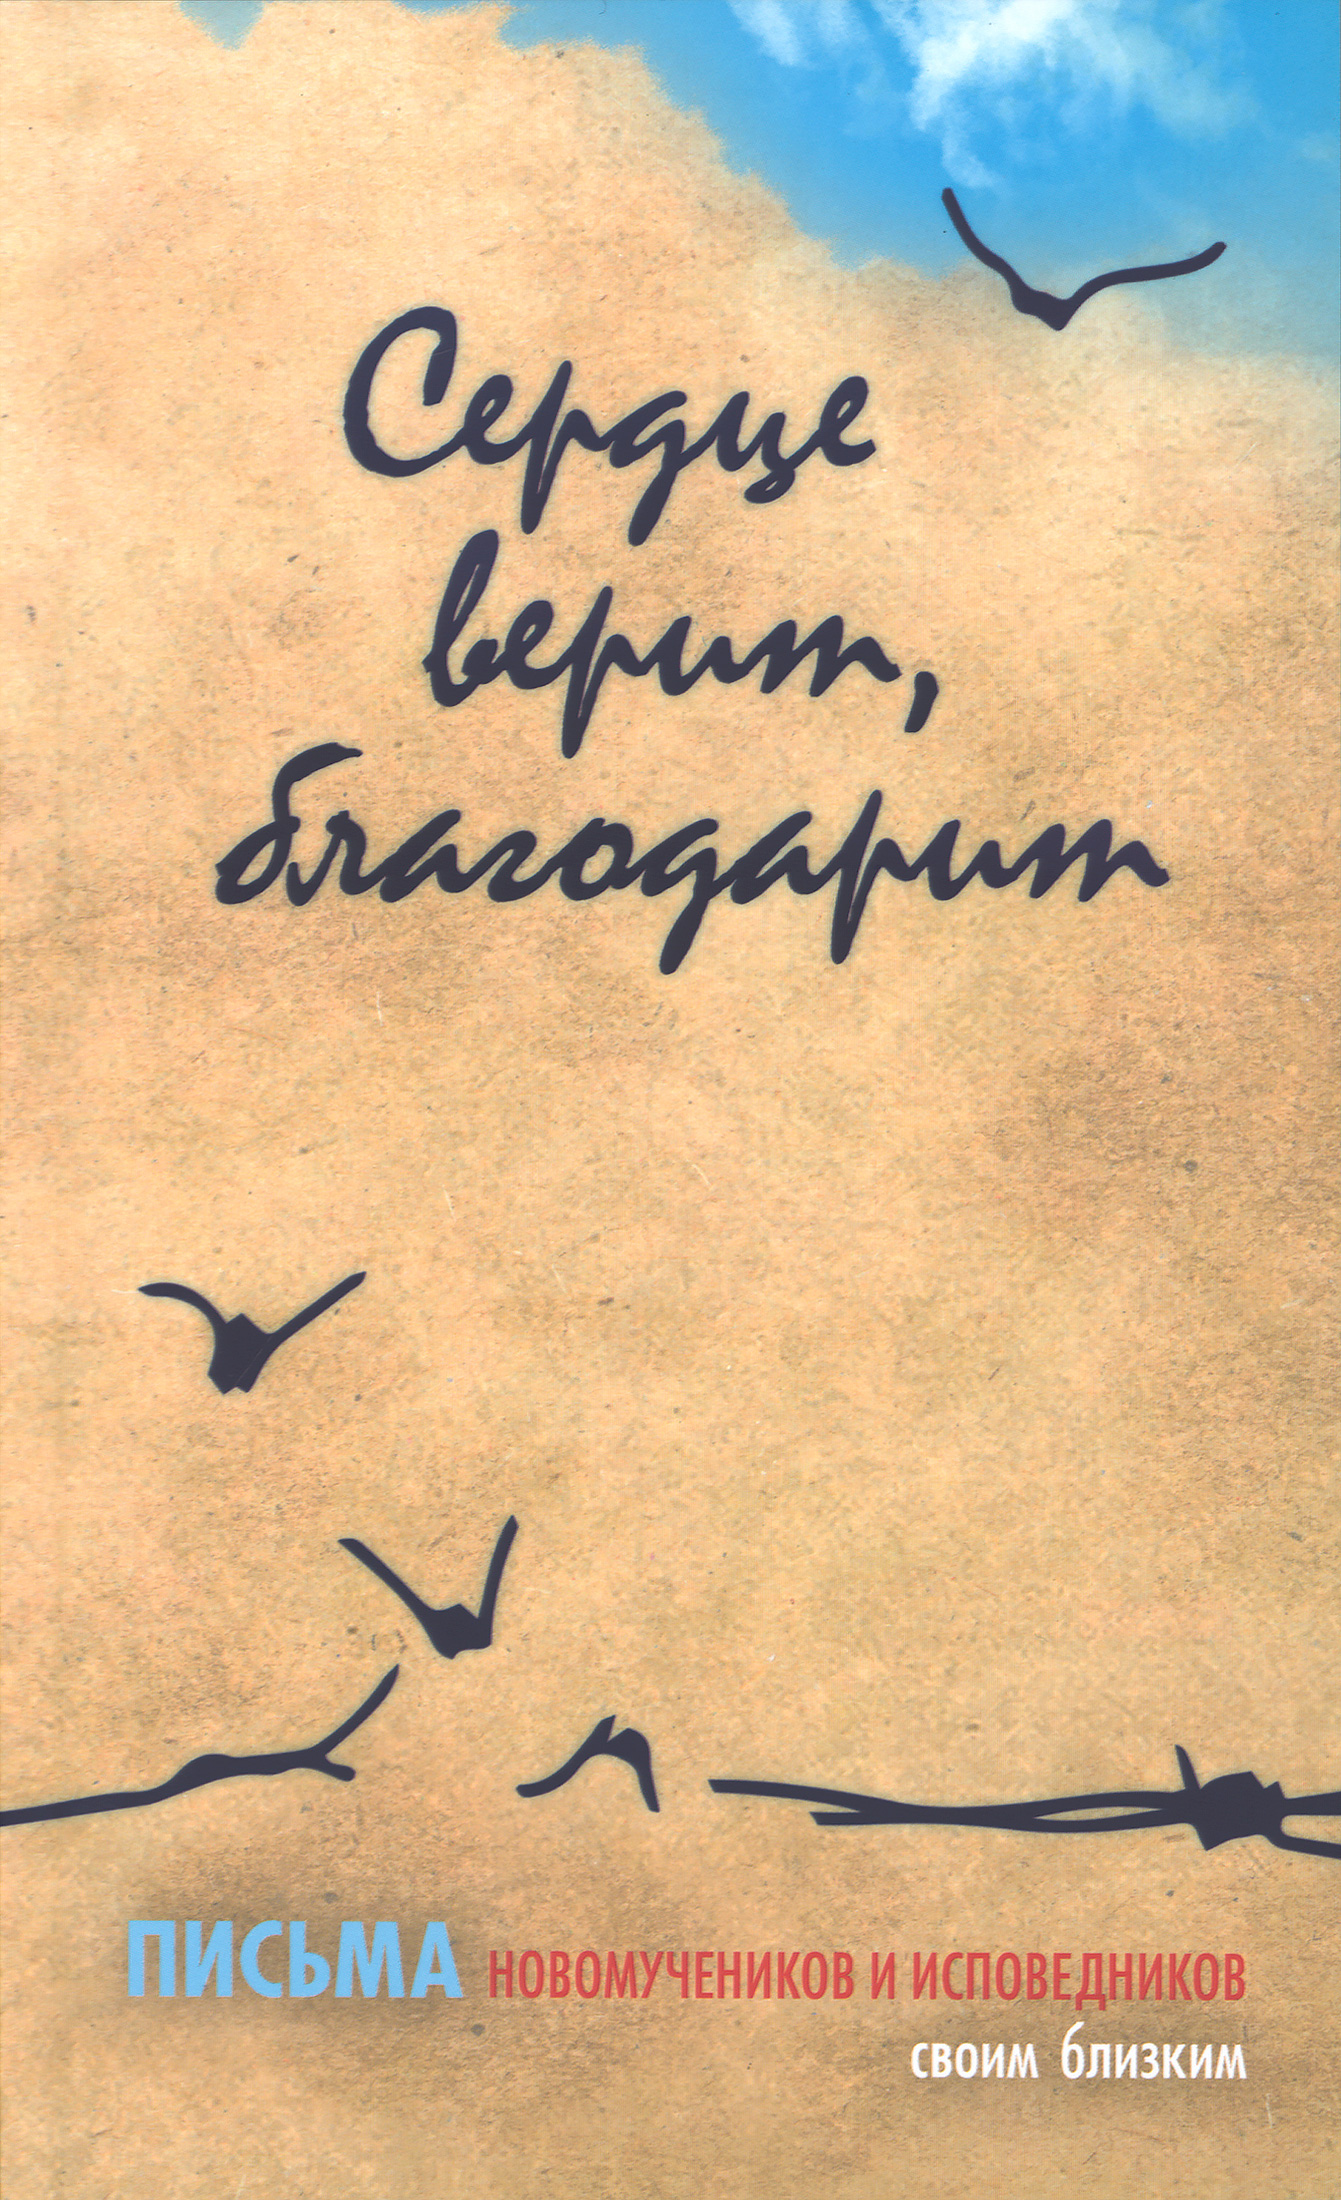 Сердце
верит,
благодарит
ПИСЬМА НОВОМУЧЕНИКОВ И ИСПОВЕДНИКОВ
своим близким